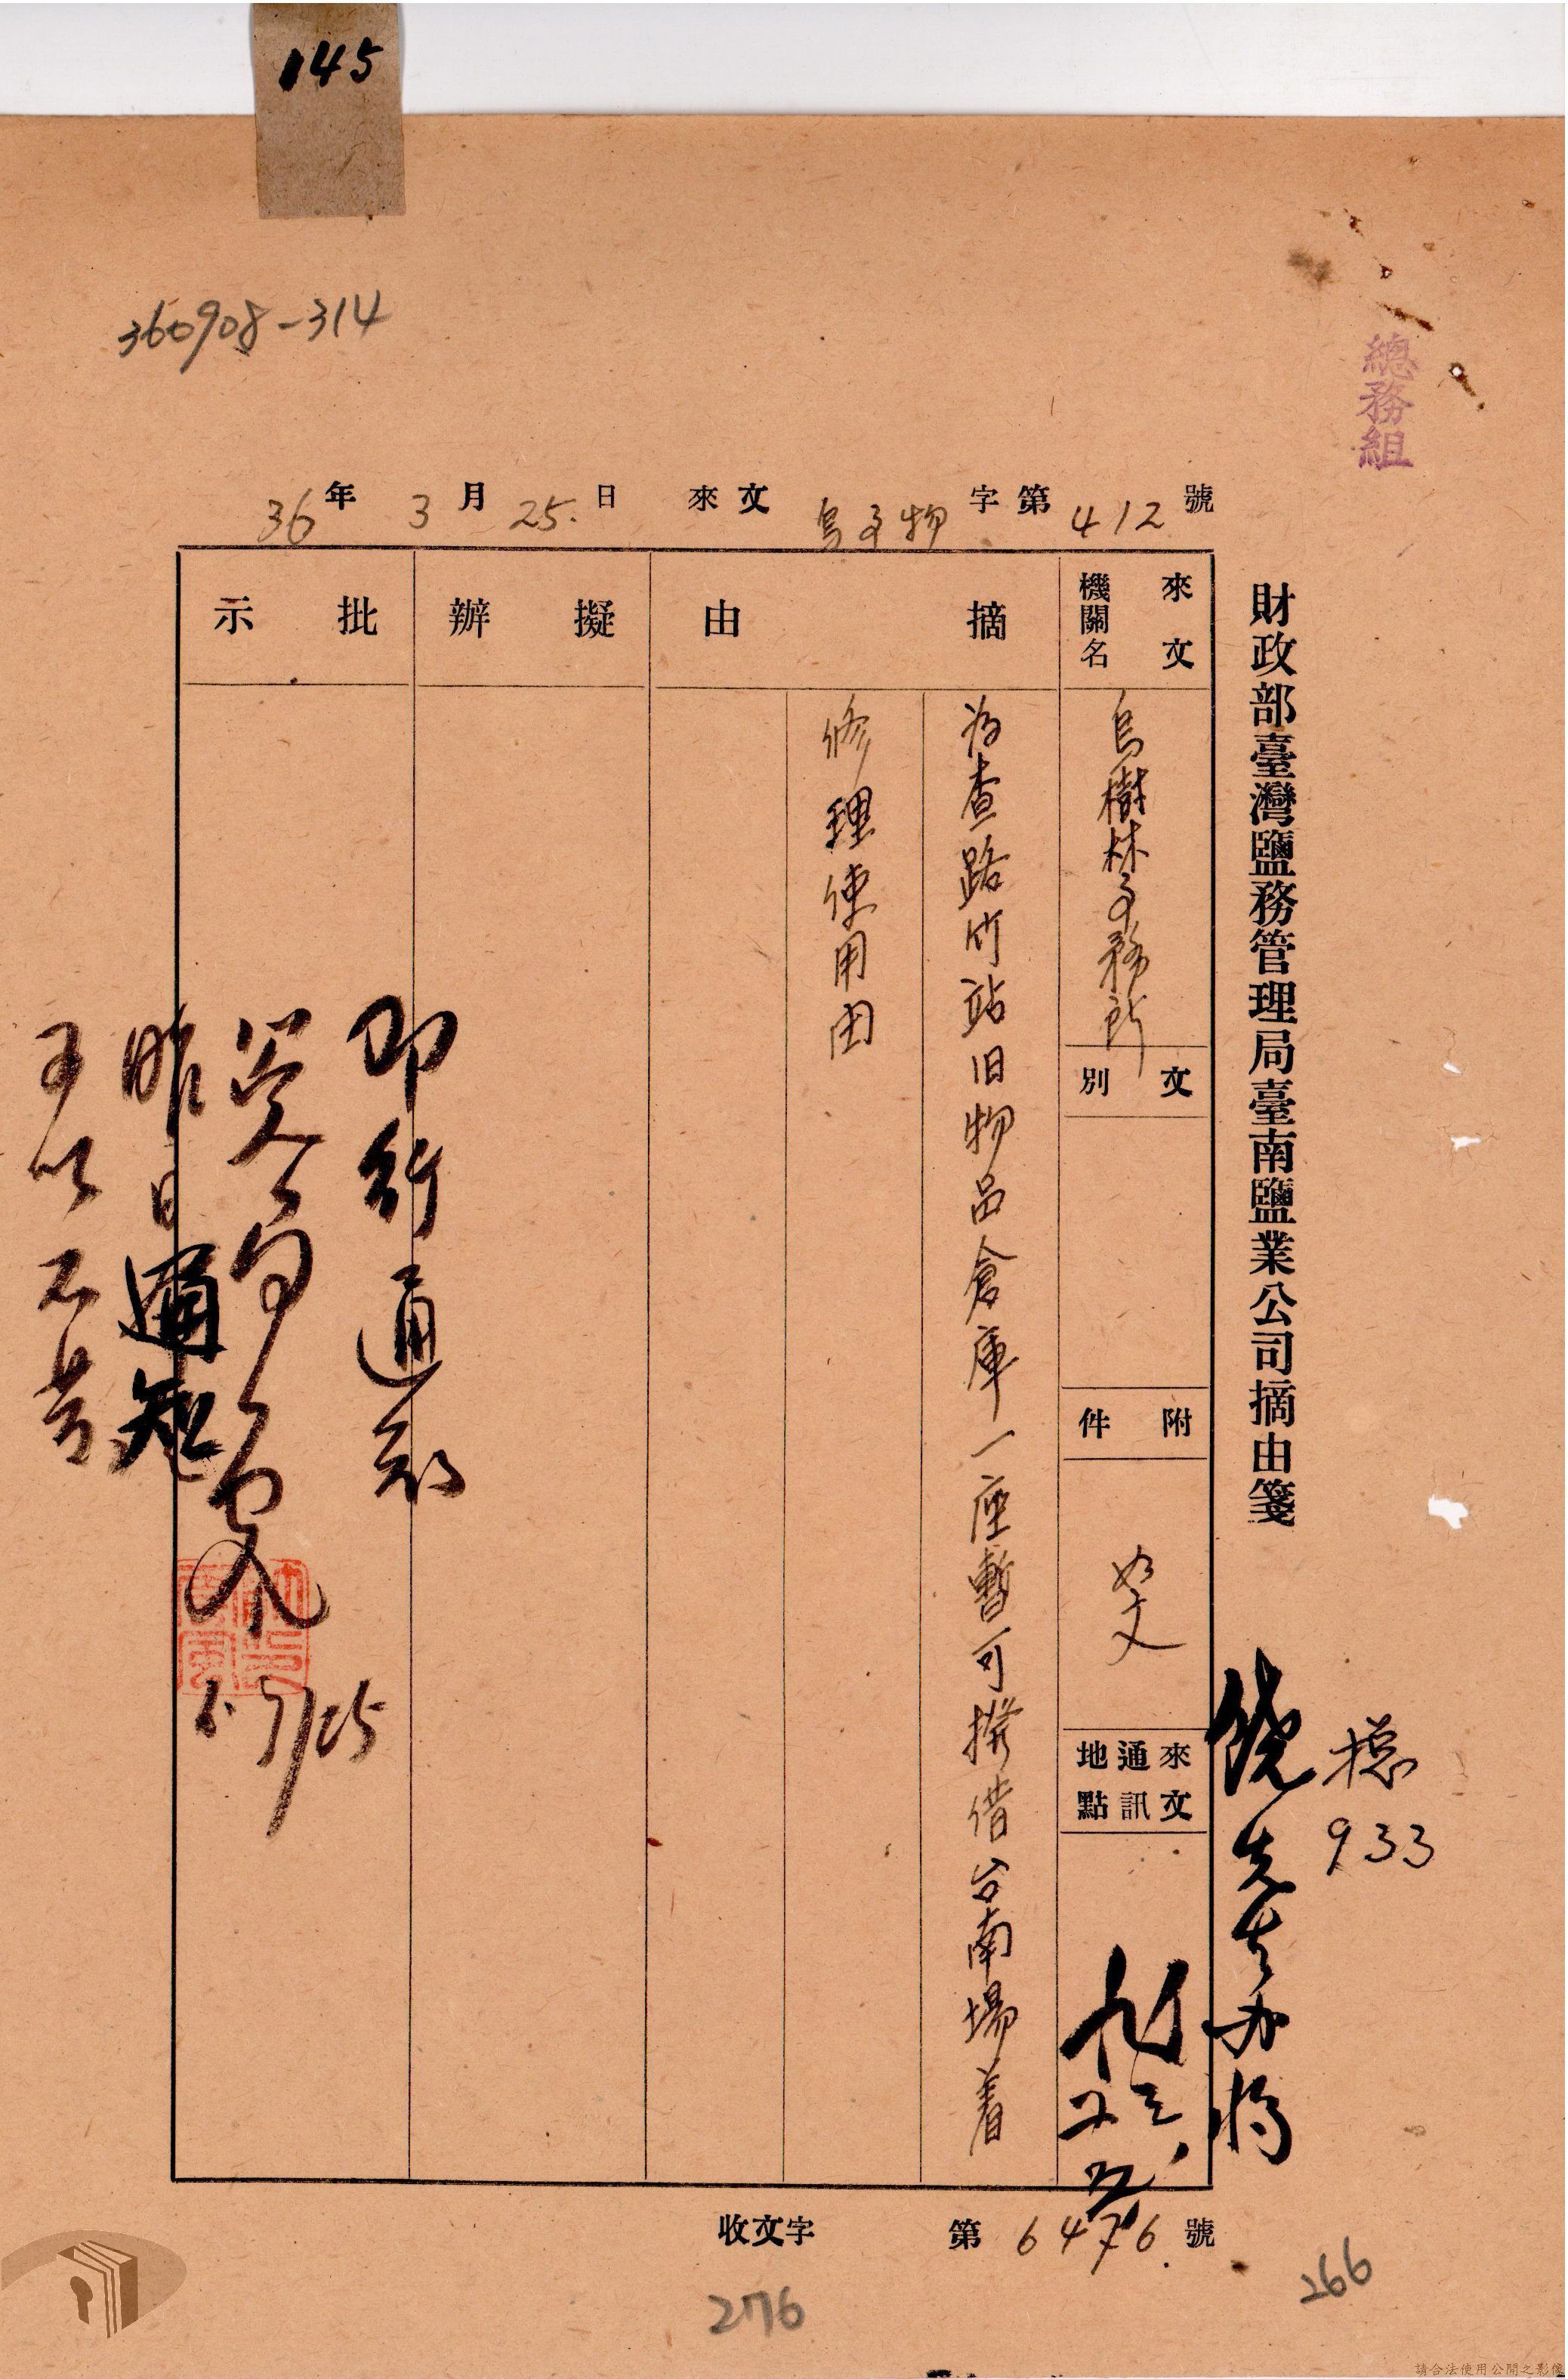 145
360908-314
總務組
36年3月25日 來文 烏事物字第412號
財政部臺灣鹽務管理局臺南鹽業公司摘由箋
來文機關名
烏樹林事務所
文別
附件
如文
來文通訊地點
摘由
為查路竹站旧物品倉庫一座暫可撥借台南場着
修理使用由
擬辦
批示
即行通知
昨日通知
饒先生办
總
933
收文字第6476號
276
266
請合法使用公開之影像